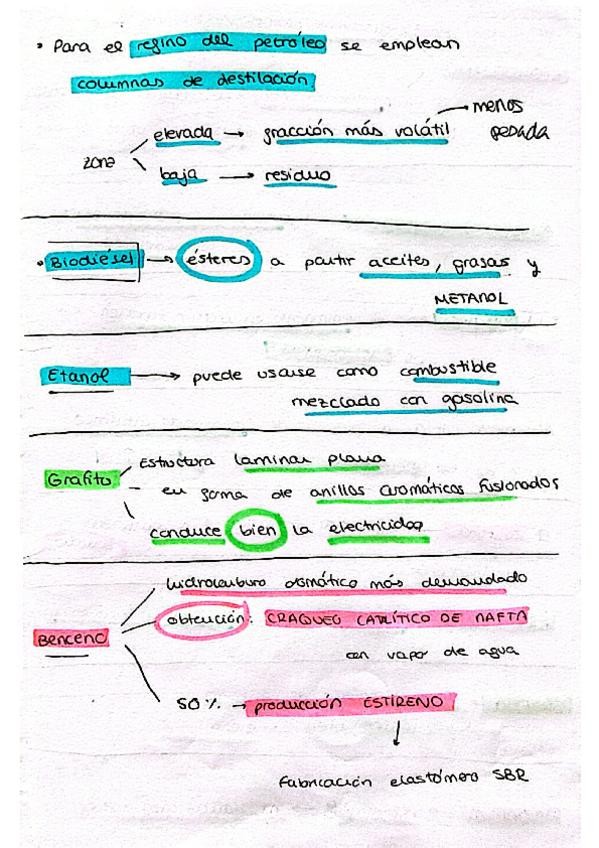 • Para el refino del petróleo se emplean
columnas de destilación
zona
elevada → fracción más volátil → menos pesada
baja → residuo
• Biodiésel → ésteres a partir aceites, grasas y
METANOL
Etanol → puede usarse como combustible
mezclado con gasolina
Grafito
Estructura laminar plana
en forma de anillos aromáticos fusionados
conduce bien la electricidad
Benceno
hidrocarburo aromático más demandado
obtención: CRAQUEO CATLÍTICO DE NAFTA
con vapor de agua
50% → producción ESTIRENO
↓
Fabricación elastómero SBR